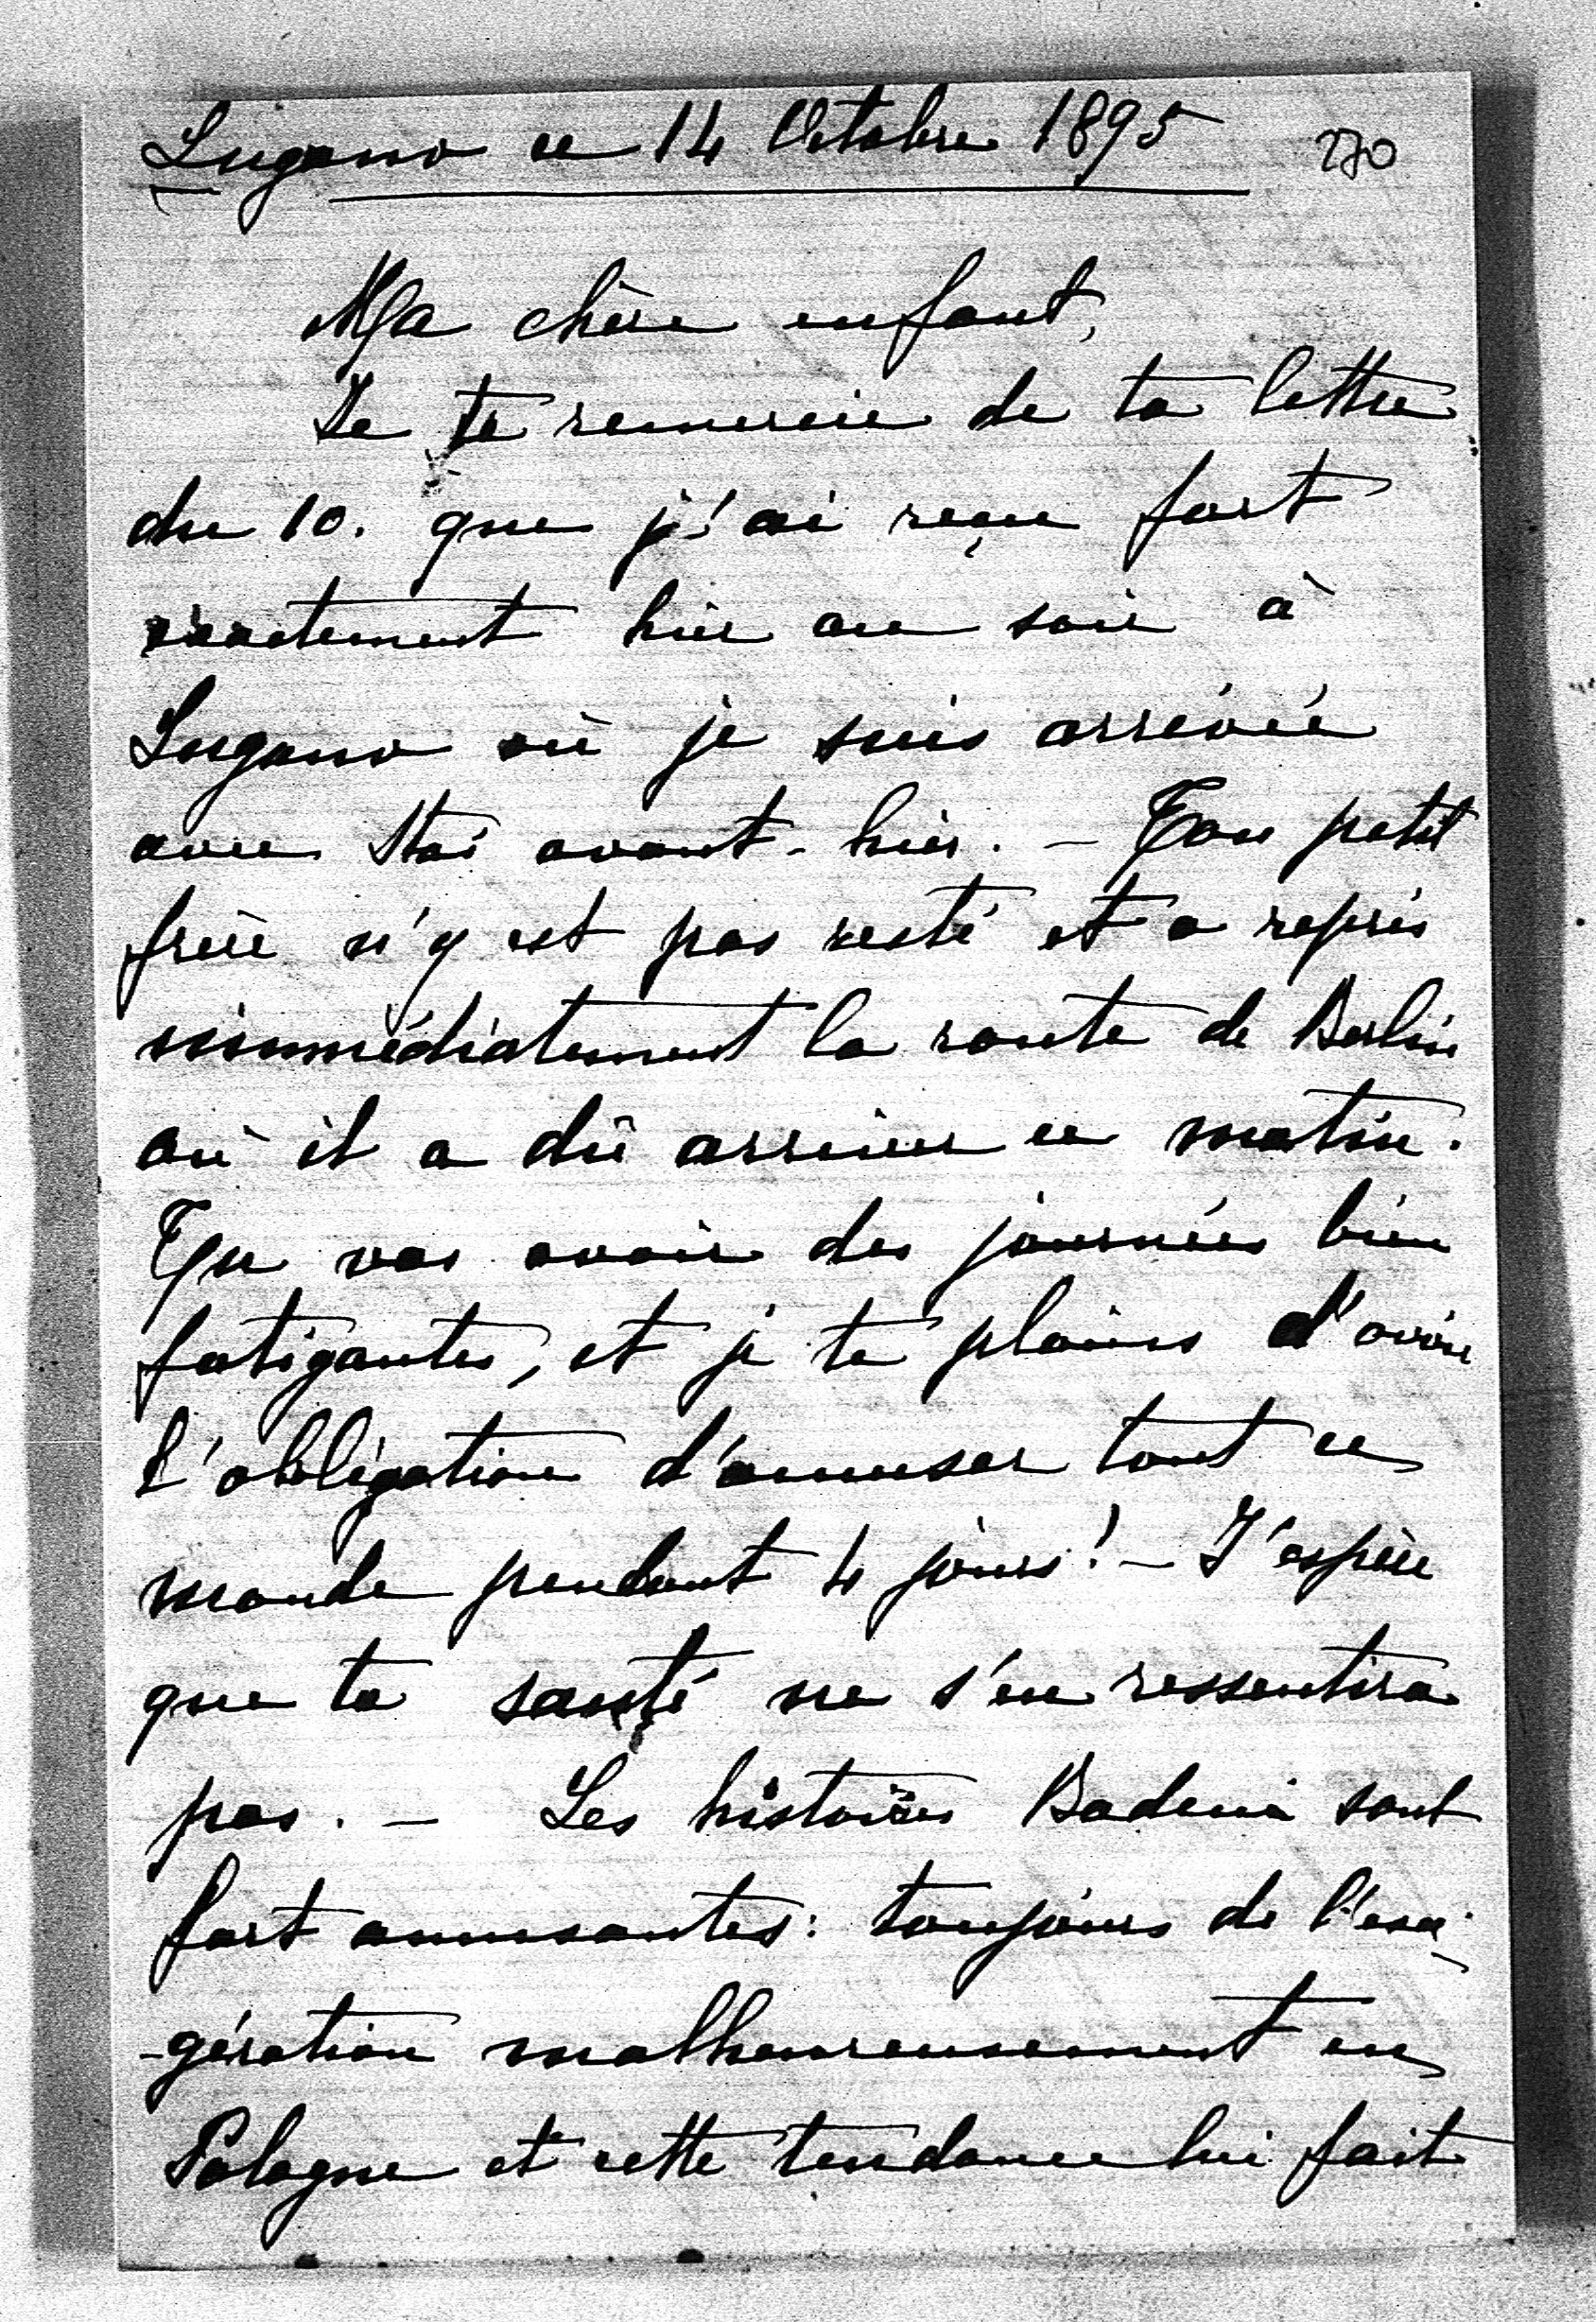 Lugano ce 14 Octobre 1895 270
Ma chère enfant,
Je te remercie de ta lettre
du 10. que j'ai reçue fort
exactement hier au soir à
Lugano où je suis arrivée
avec Stas avant-hier. – Ton petit
frère n'y est pas resté et a repris
immédiatement la route de Berlin
où il a dû arriver ce matin.
Tu vas avoir des journées bien
fatigantes, et je te plains d'avoir
l'obligation d'amuser tout ce
monde pendant 4 jours! – J'espère
que ta santé ne s'en ressentira
pas. – Les histoires Badeni sont
fort amusantes: toujours de l'exa-
-gération malheureusement en
Pologne et cette tendance lui fait